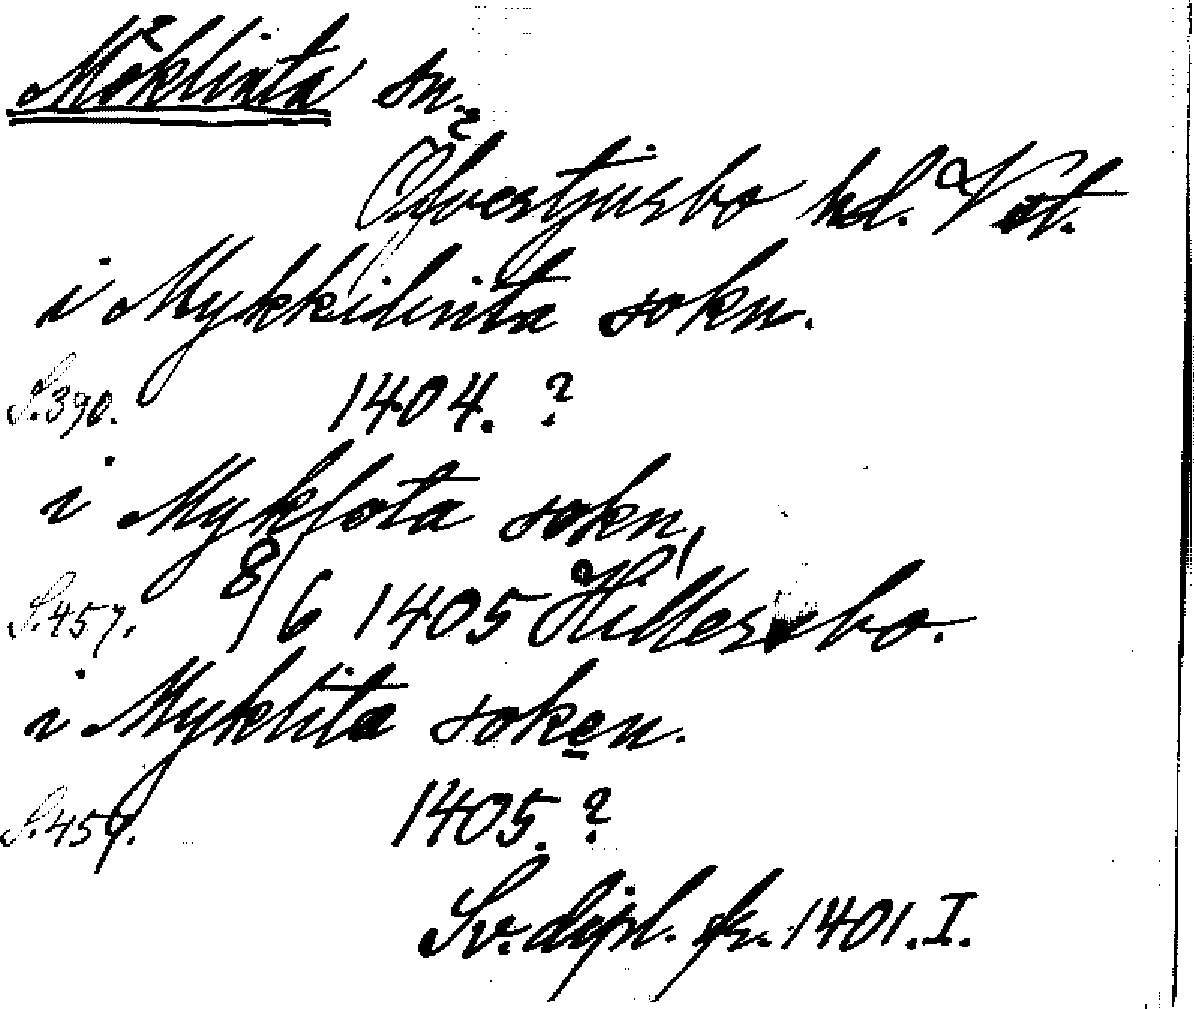 Möklinta sn.
Öfvertjurbo hd. Vstm.
i Mykkilinta sokn.
S. 390. 1404. ?
i Myklota sokn,
S. 457. 8/6 1405 Hillersbo.
i Myklita soken.
S. 457. 1405. ?
Sv. dipl. fr. 1401. I.